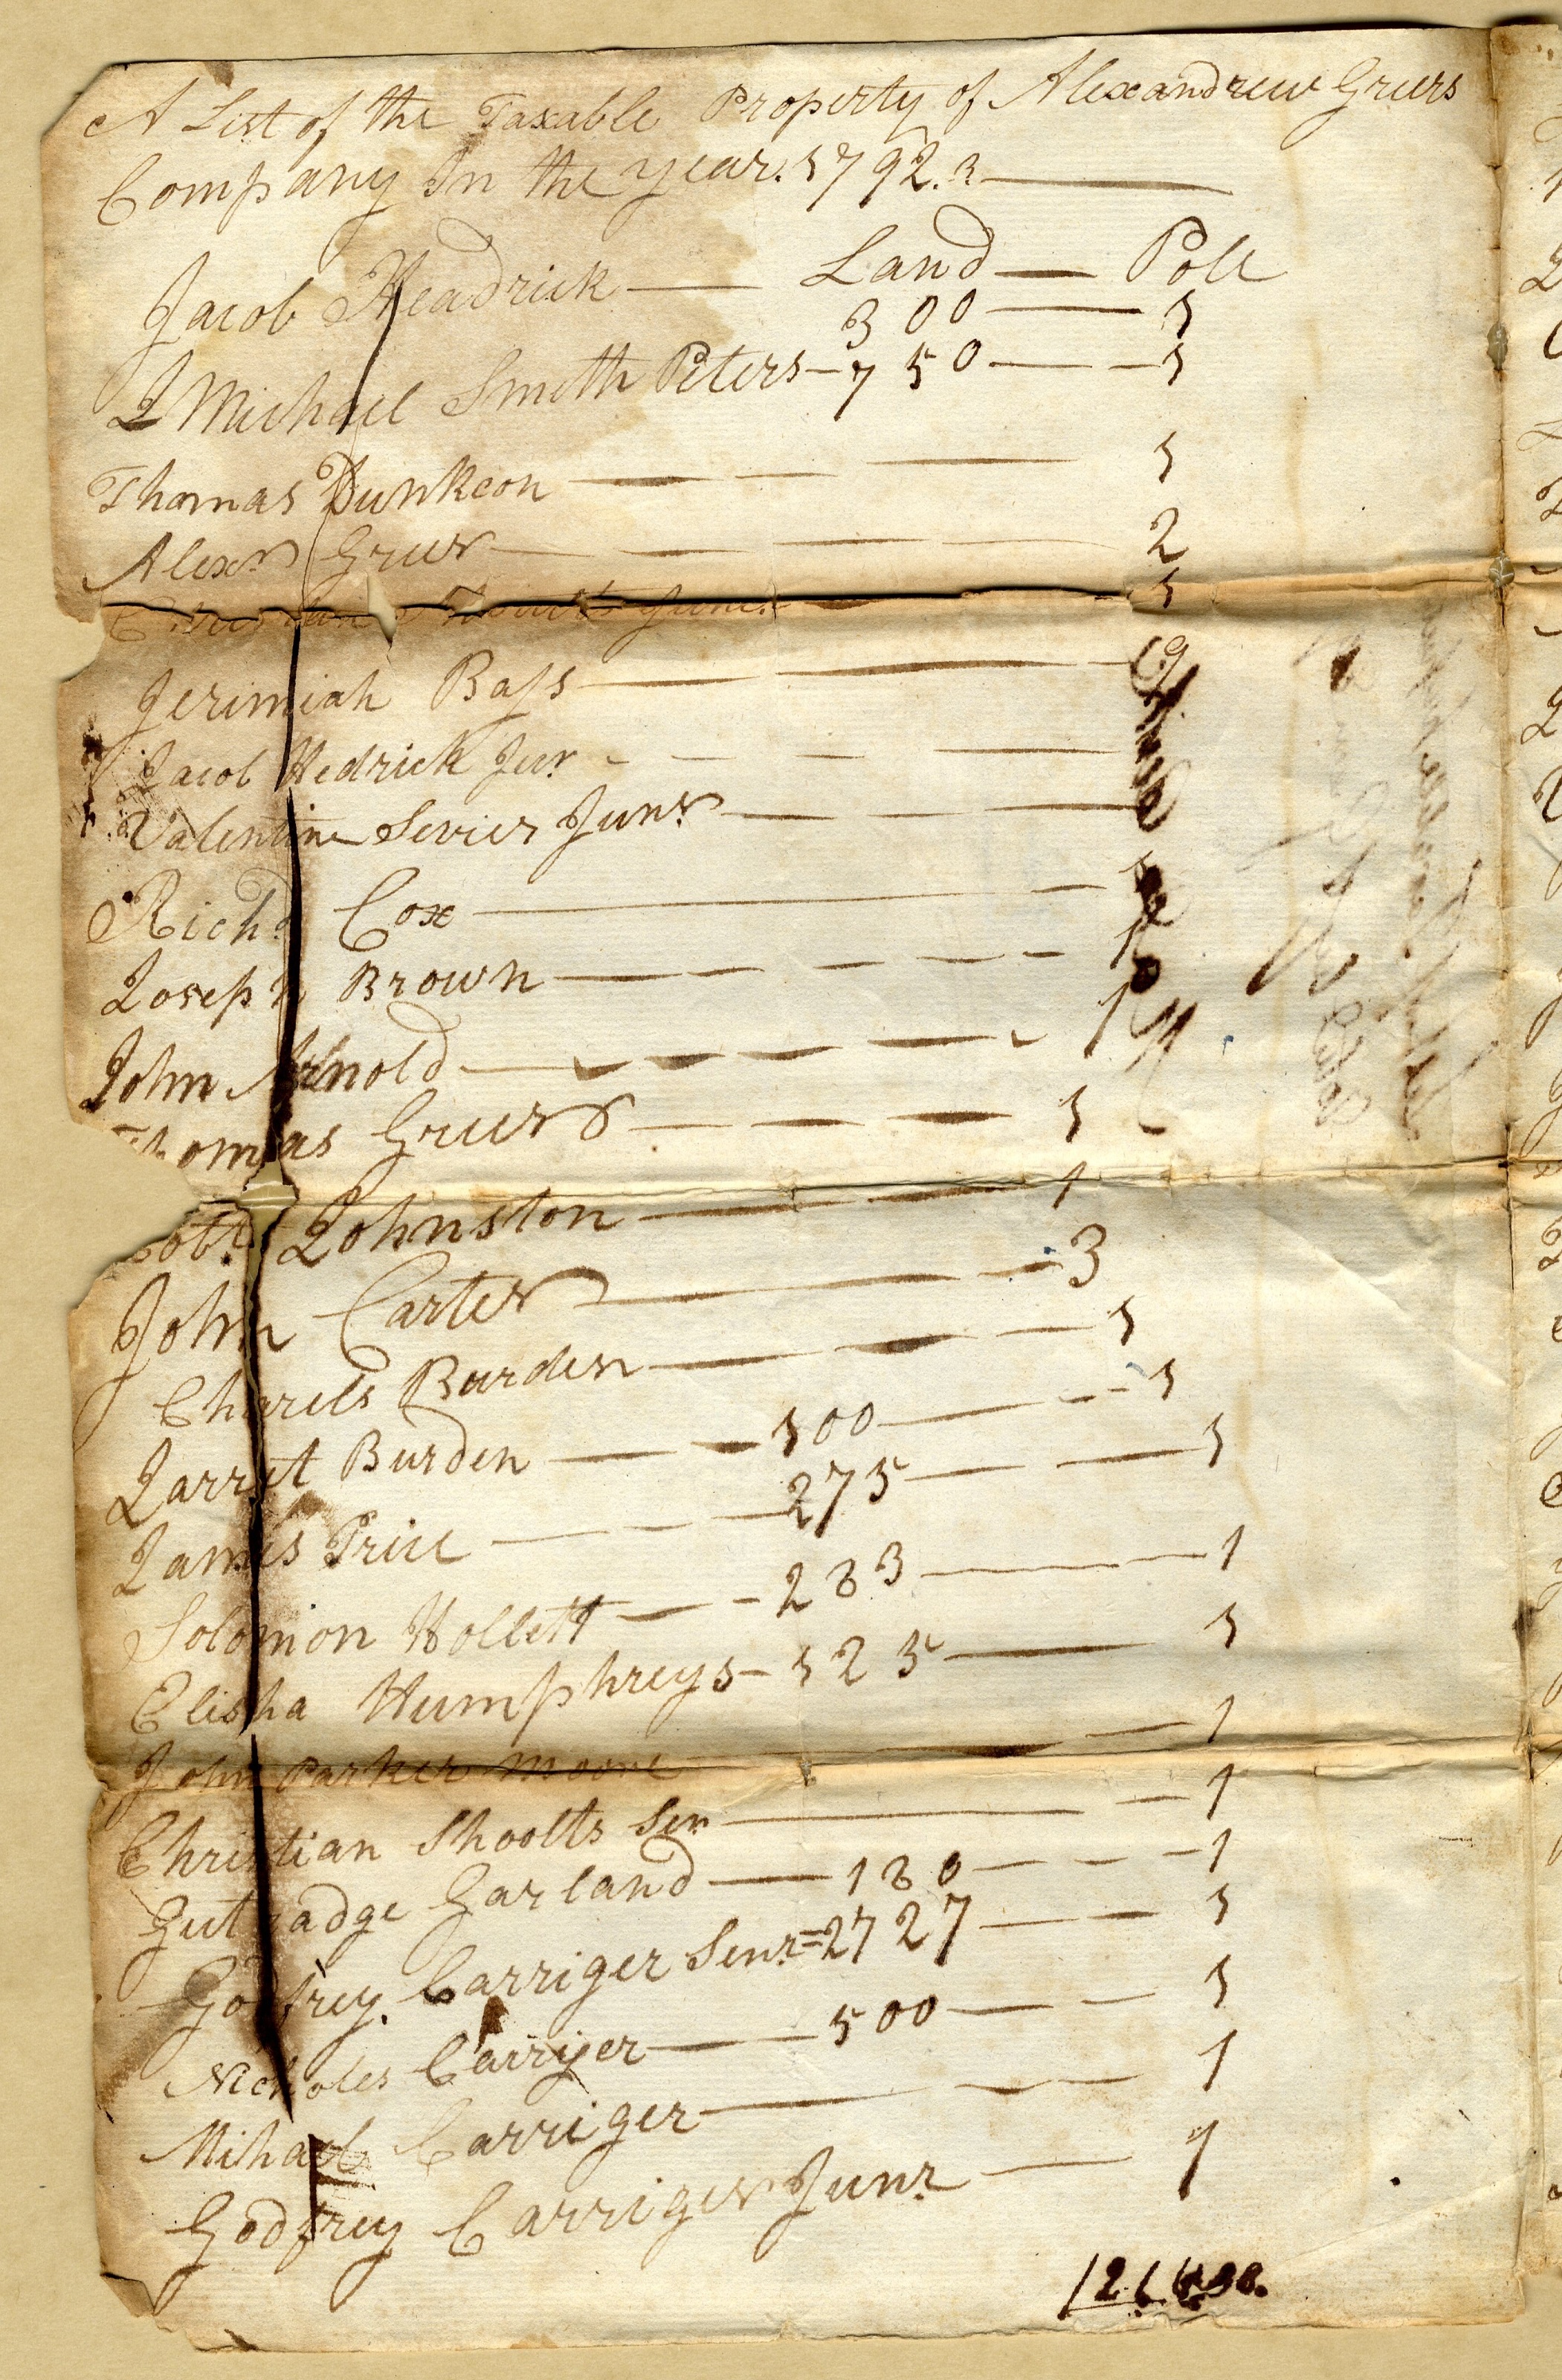 A List of the Taxable Property of Alexandrew Greers
Company In the year. 1792.
Land — Poll
Jacob Headrick — 300 — 1
J Michael Smith Peters — 750 — 1
Thomas Dunkcon — 1
Alexr Greer — 2
Junr. — 1
Jerimiah Bass —
Jacob Hedrick Jur —
Valentine Sevier Junr —
Richd Cox — 1
Joseph Brown — 1
John Arnold — 1
Thomas Greer — 1
Robt. Johnston — 1
John Carter — 3
Charels Burden — 1
Jarret Burden — 100 — 1
James Price — 275 — 1
Solomon Hollett — 283 — 1
Elisha Humphreys — 125 — 1
John Parker Moore — 1
Christian Shoolts Sen — 1
Gutradge Garland — 180 — 1
Godfrey. Carriger Senr = 2727 — 1
Nicholes Carriger — 500 — 1
Mihael Carriger — 1
Godfrey Carriger Junr — 1